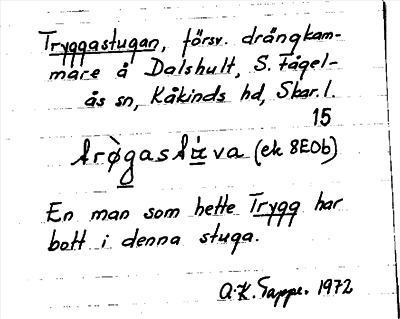 Tryggastugan, försv. drängkam-
mare å Dalshult, S. Fågel-
ås sn, Kåkinds hd, Skar. l.
15
(ek 8E0b)
En man som hette Trygg har
bott i denna stuga.
A.K. Tappe. 1972